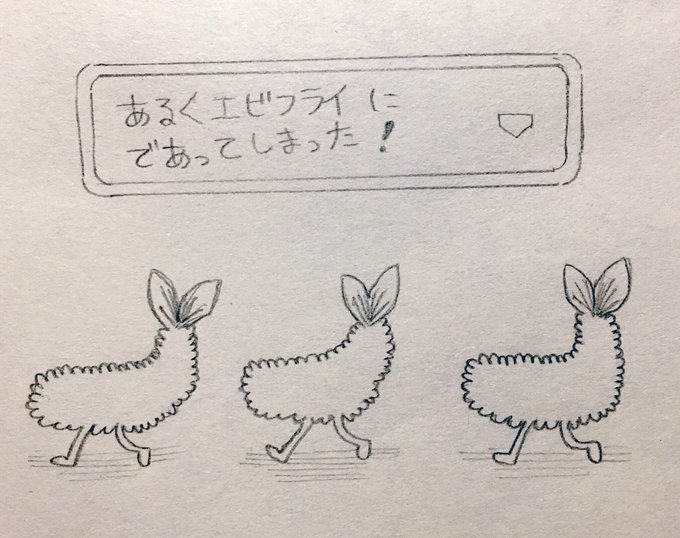 あるくエビフライに
であってしまった！